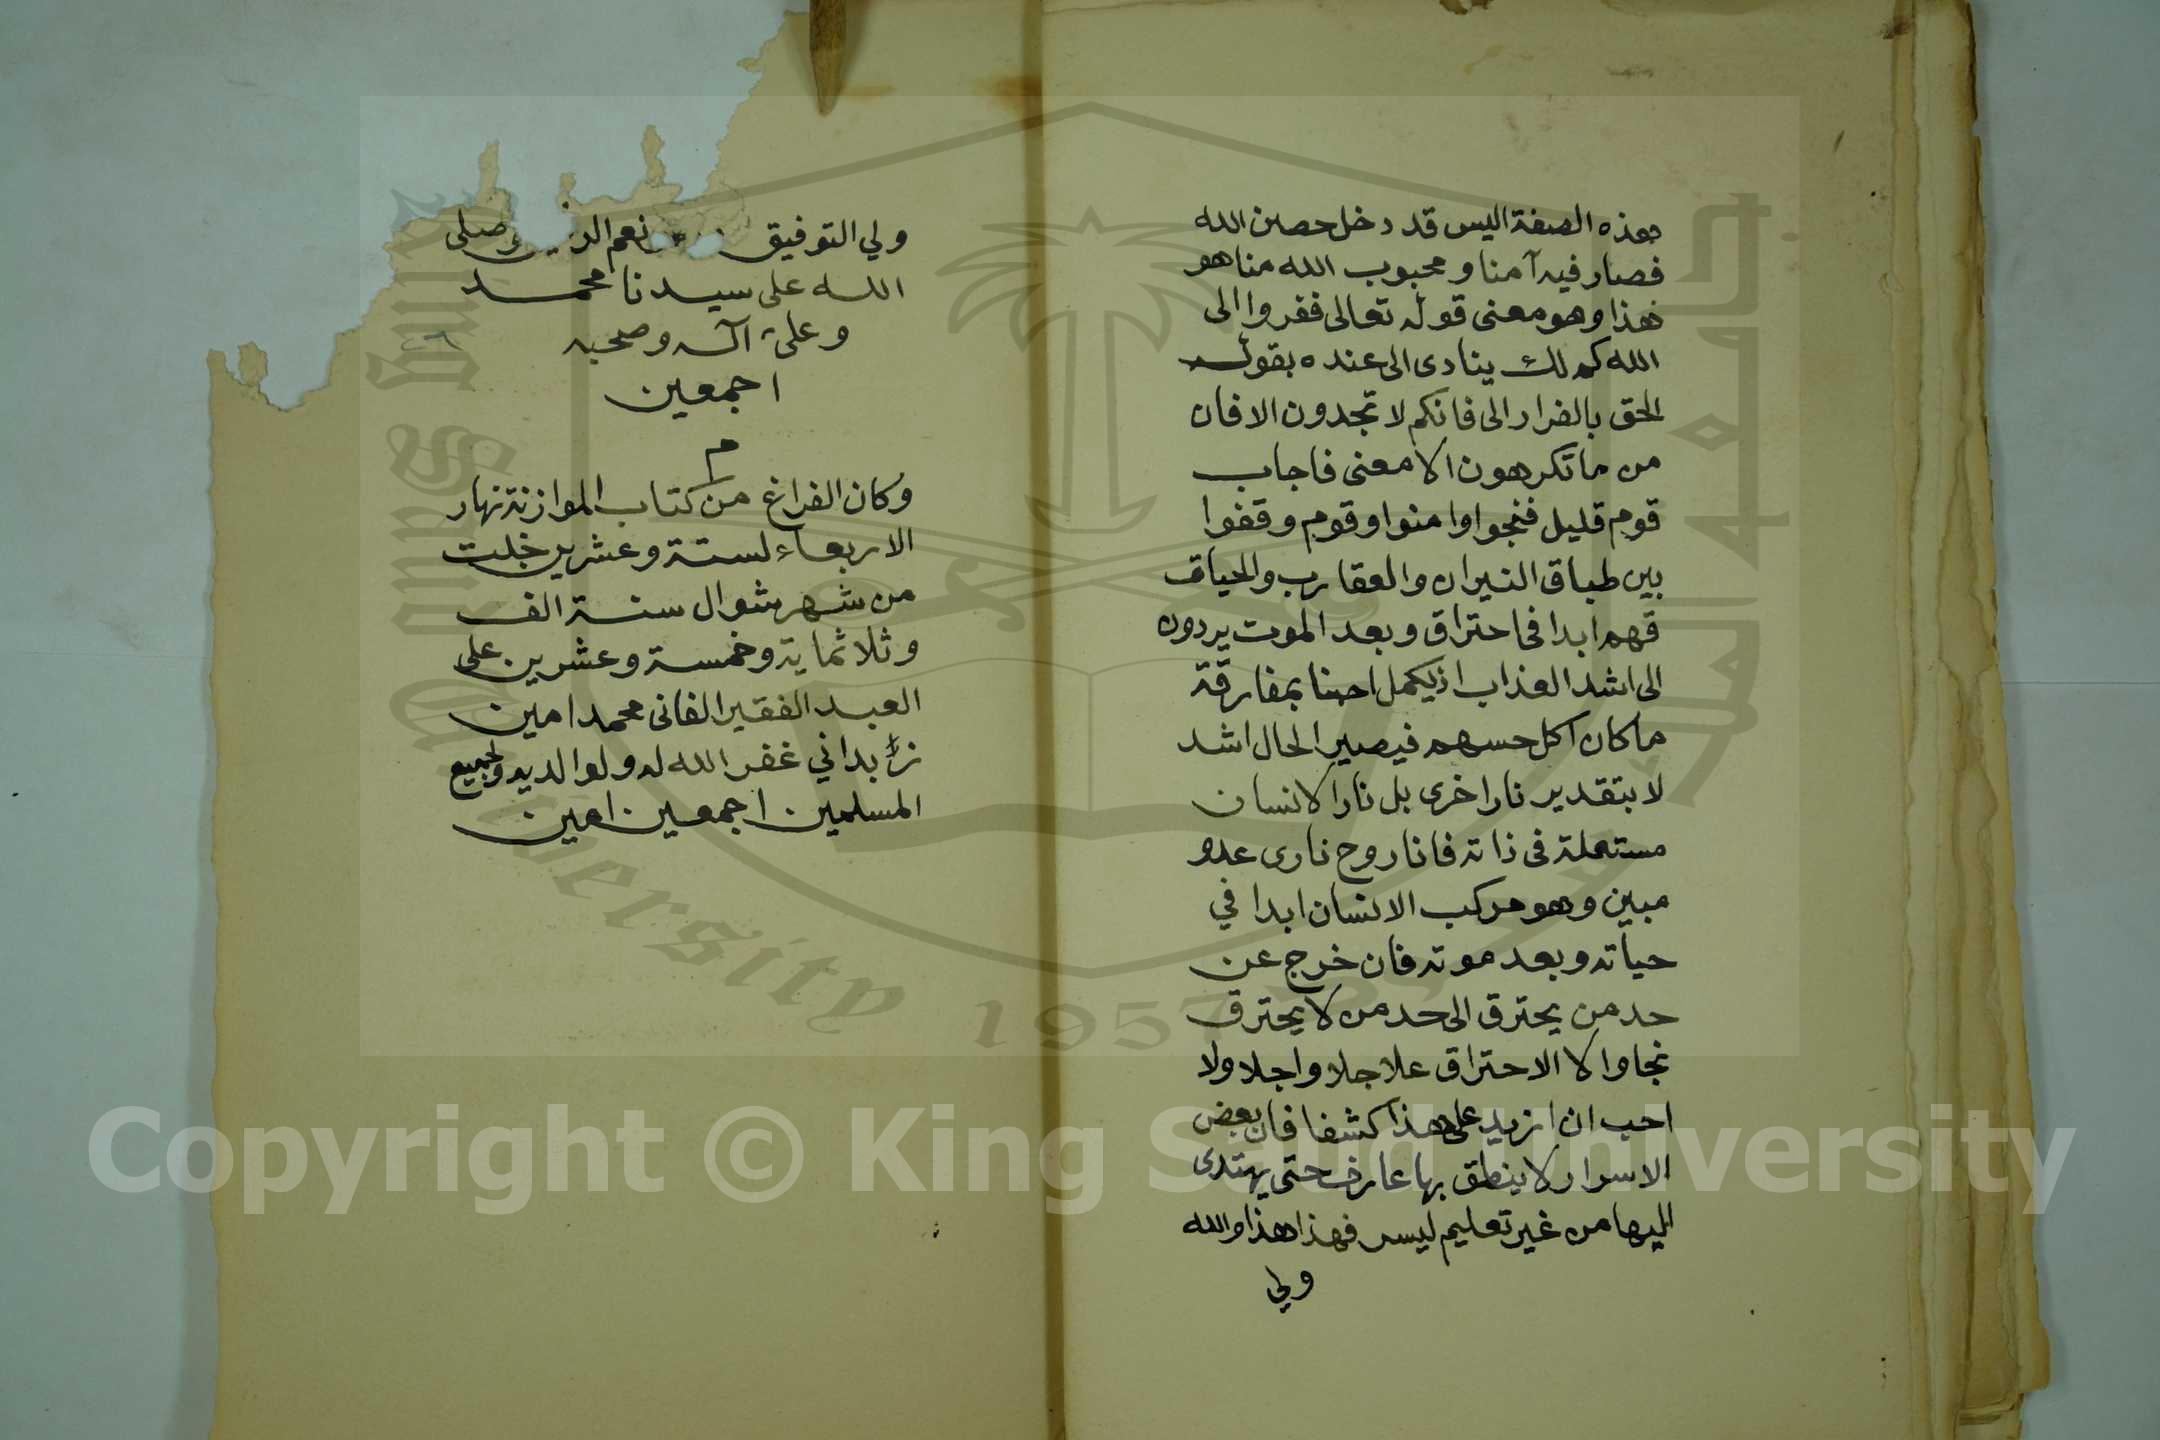 هذه الصفة اليس قد دخل حصن الله
فصار فيه آمنا ومحبوب الله مناهو
هذا وهو معنى قوله تعالى ففروا الى
الله كم لك ينادى الى عنده بقوله
الحق بالفرار الى فانكم لا تجدون الافان
من ما تكرهون الا معنى فاجاب
قوم قليل فنجوا وامنوا وقوم وقفوا
بين طباق النيران والعقارب والحياة
فهم ابدا فى احتراق وبعد الموت يردون
الى اشد العذاب اذ يكمل بمفارقة
ما كان اكل حسهم فيصير الحال اشد
لا بتقدير نار اخرى بل نار الانسان
مستعملة فى ذاته فانا روح نارى عدو
مبين وهو مركب الانسان ابدا في
حياته وبعد موته فان خرج عن
حد من يحترق الى حد من لا يحترق
نجا والا الاحتراق علاجلا واجلا ولا
احب ان ازيد على هذا كشفا فان بعض
الاسرار لا ينطق بها عارف حتى يهتدى
اليها من غير تعليم ليس فهذا هذا والله
ولي
ولي التوفيق نعم وصلى
الله على سيدنا محمد
وعلى آله وصحبه
اجمعين
م
وكان الفراغ من كتاب الموازنة نهار
الاربعاء لستة وعشرين خلت
من شهر شوال سنة الف
وثلاثماية وخمسة وعشرين على
العبد الفقير الفانى محمد امين
غفر الله له ولوالديه ولجميع
المسلمين اجمعين امين
٤٦
King Saud University 1957
جامعة الملك سعود
Copyright © King Saud University